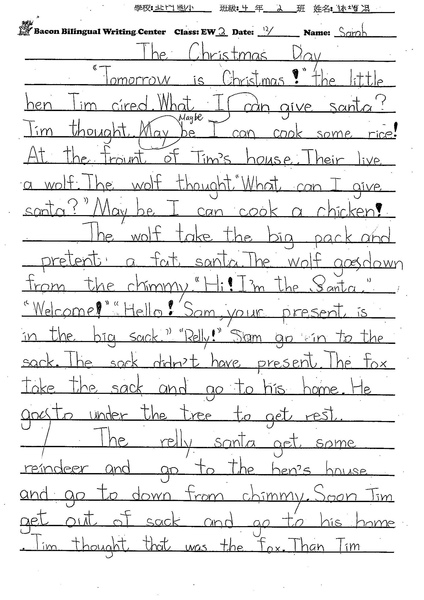 學校:北門國小 班級:4年2班 姓名:
Bacon Bilingual Writing Center Class: EW2 Date: 12/ Name: Sarah
The Christmas Day
"Tomorrow is Christmas!" the little
hen Tim cired. What I can give santa?
Maybe
Tim thought. May be I can cook some rice!
At the frount of Tim's house. Their live
a wolf. The wolf thought "What can I give
santa?" May be I can cook a chicken!
The wolf take the big pack and
pretent a fat santa. The wolf goes down
from the chimmy. "Hi! I'm the Santa."
"Welcome!" "Hello! Sam, your present is
in the big sack." "Relly!" Sam go in to the
sack. The sack didn't have present. The fox
take the sack and go to his home. He
goes to under the tree to get rest.
The relly santa get some
reindeer and go to the hen's house
and go to down from chimmy. Soon Tim
get out of sack and go to his home
. Tim thought that was the fox. Than Tim